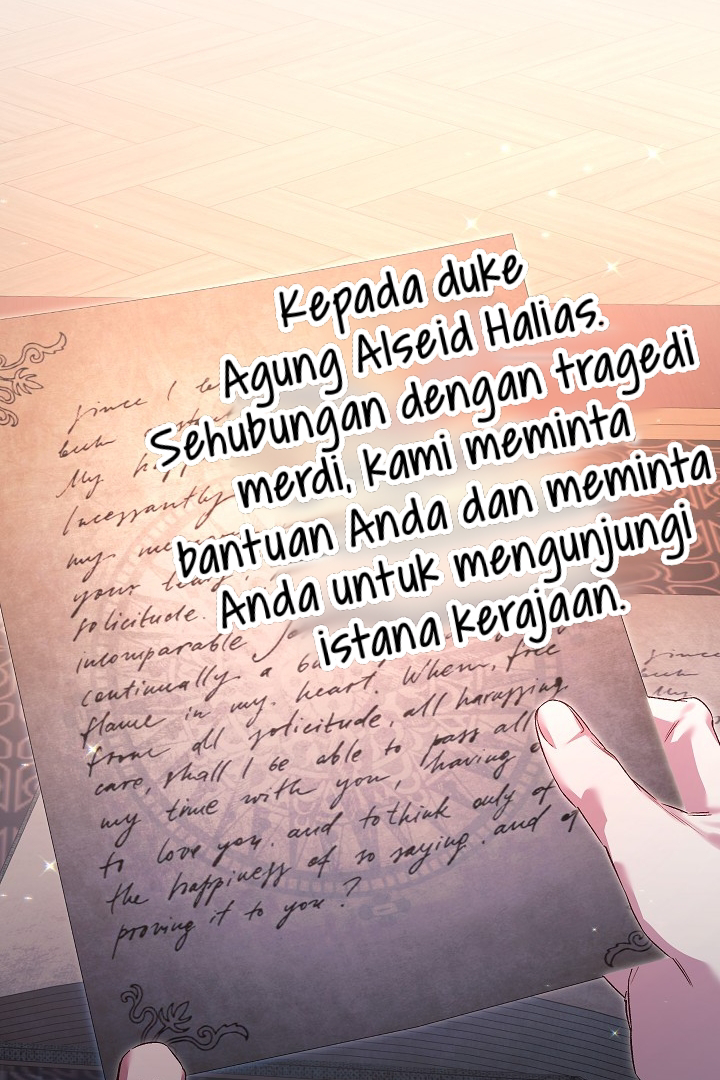 Kepada duke
Agung Alseid Halias.
Sehubungan dengan tragedi
merdi, kami meminta
bantuan Anda dan meminta
Anda untuk mengunjungi
istana kerajaan.
since I
buk
My
Incessantly
my
your
solicitude.
incomparable
continually a
flame in my. heart. When, free
from all solicitude, all harassing
care, shall I be able to pass all
my time with you, having
to love you. and tothink only of
the happiness of so saying. and of
proving it to you?
since
buk
My